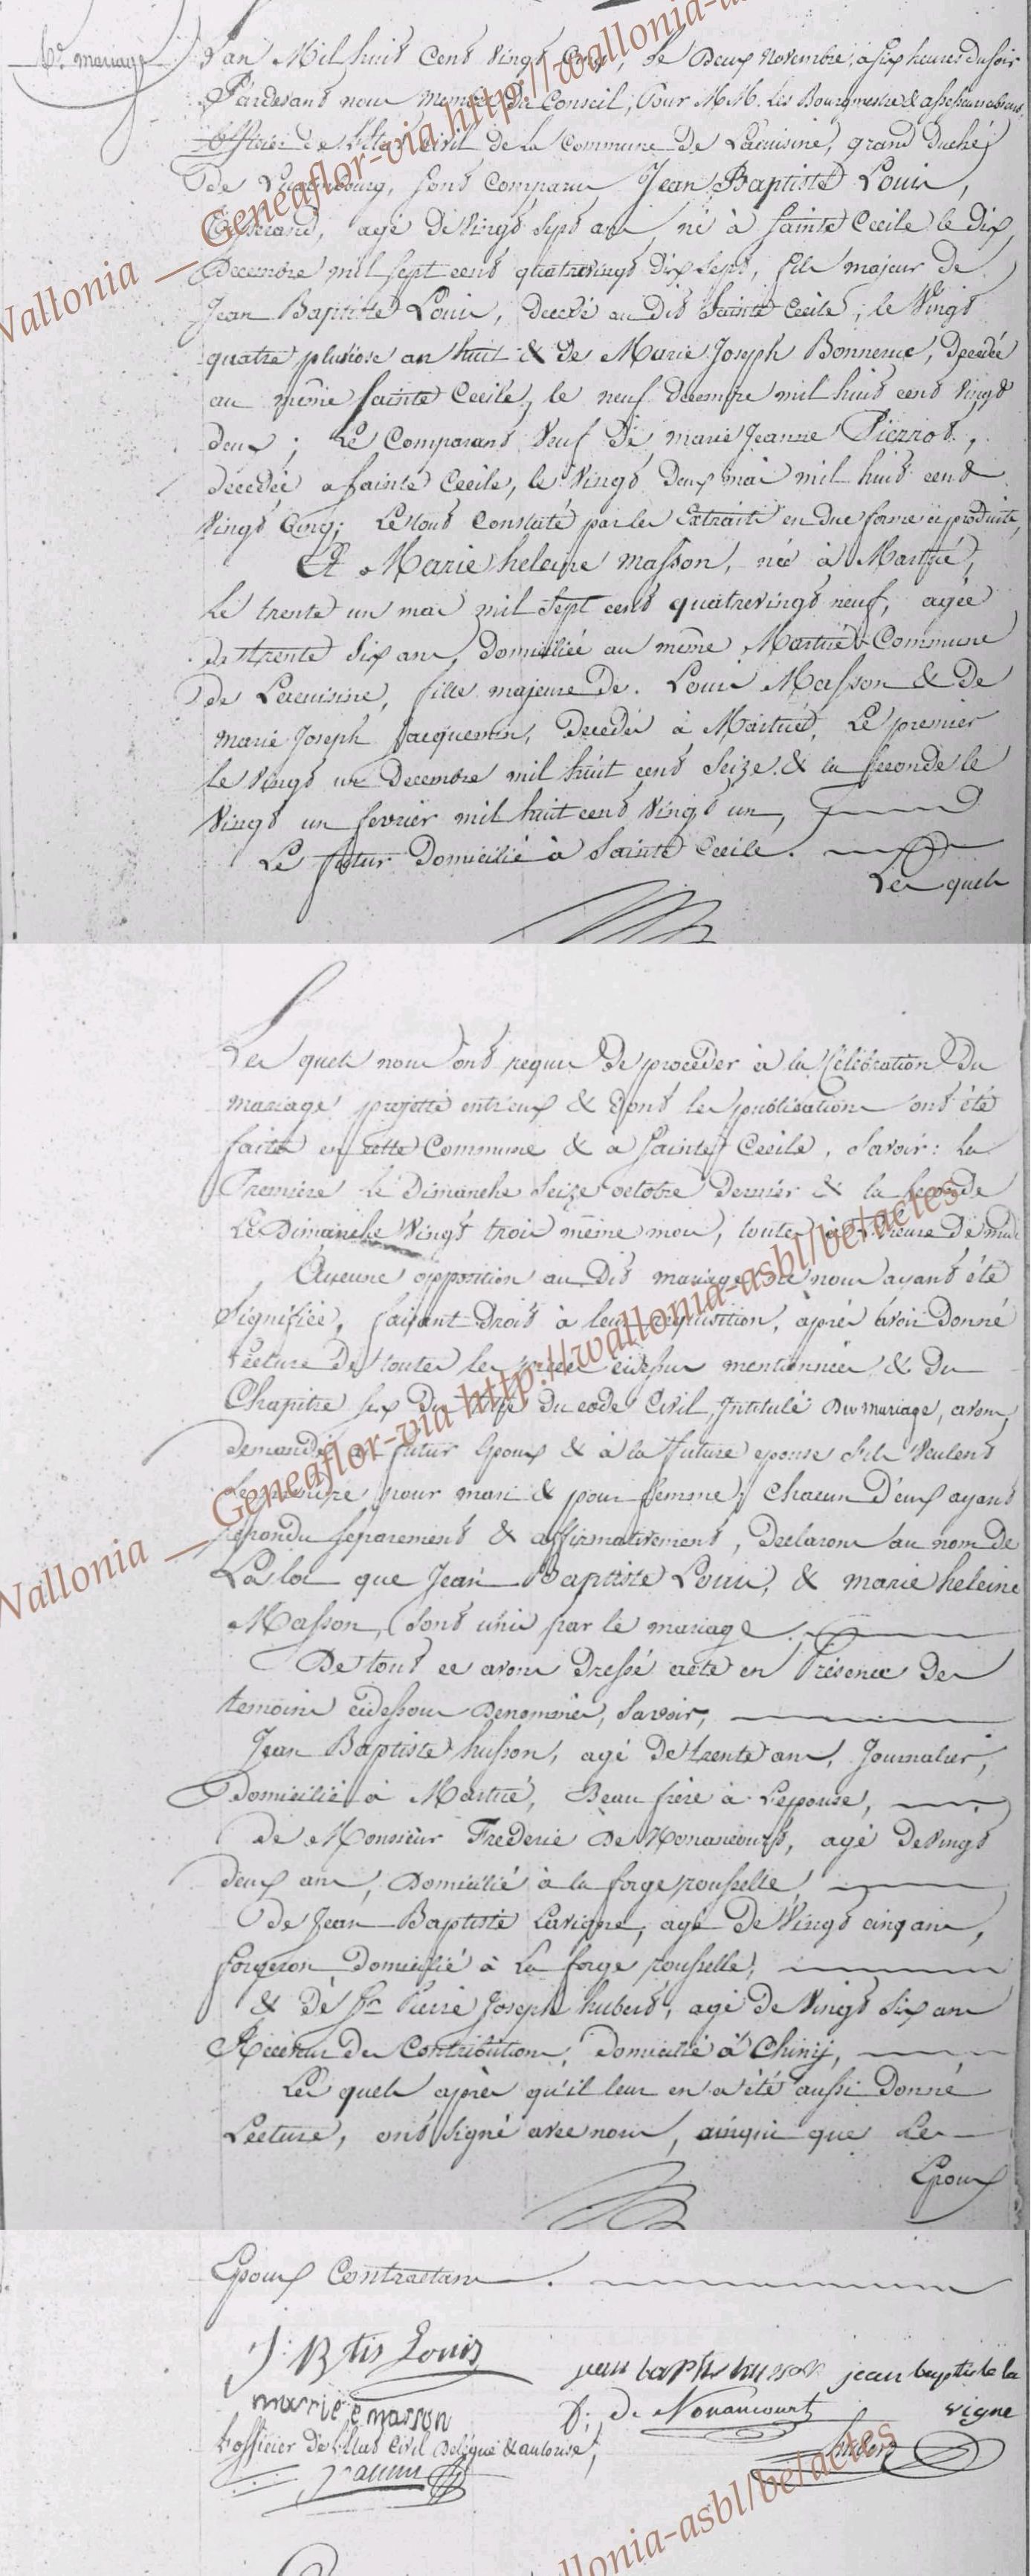 6e mariage
L'an Mil huit Cent Vingt Cinq, le Deux Novembre, a six heures du soir
Pardevant nous membre du Conseil, Pour M.M. Les Bourgmestre & assesseurs absents,
officier de l'Etat Civil de la Commune de Lacuisine, grand Duché
de Luxembourg, sont Comparu Jean Baptiste Louis,
agé de Vingt Sept ans, né à Sainte Cecile le dix
Decembre mil sept cent quatrevingt dix sept, fils majeur de
Jean Baptiste Louis, decedé au dit Sainte Cecile, le Vingt
quatre pluviose an huit & de Marie Joseph Bonneruë, decedée
au même Sainte Cecile, le neuf decembre mil huit cent vingt
deux ; Le Comparant Veuf de marie Jeanne Pierrot,
decedée a sainte Cecile, le Vingt Deux mai mil huit cent
Vingt Cinq; Le tout Constaté par les Extraits en due forme ci produits,
Et Marie heleine Masson, née à Martué,
Le trente un mai mil Sept cent quatrevingt neuf, agée
de trente Six ans, domiciliée au même Martué Commune
de Lacuisine, fille majeure de Louis Masson & de
Marie Joseph Jacquemin, Decedés à Martué, Le premier
le Vingt un Decembre mil huit cent Seize & la seconde le
Vingt un fevrier mil huit cent Vingt un,
Le futur Domicilié à Sainte Cecile.
Les quels
Les quels nous ont requis De proceder à la Célébration Du
mariage projetté entreux & dont les publications ont été
faites en cette Commune & a Sainte Cecile, Savoir: la
Premiere Le Dimanche Seize octobre Dernier & la seconde
Le Dimanche Vingt trois même mois, toutes à l'heure de midi
Aucune opposition au Dit mariage ne nous ayant été
Signifiée, faisant Droit à leur requisition, après avoir Donné
Lecture De toutes les pieces cidessus mentionnées & du
Chapitre six Du titre du code Civil, Intitulé Du mariage, avons
demandé au futur Epoux & à la future epouse s'ils veulent
se prendre pour mari & pour femme, Chacun D'eux ayant
repondu separement & affirmativement, Declarons au nom de
La loi que Jean Baptiste Louis, & marie heleine
Masson, sont unis par le mariage.
De tout ce avons Dressé acte en Présence des
temoins cidessous Denommés, Savoir,
Jean Baptiste husson, agé De trente ans, Journalier,
Domicilié à Martué, Beau frère à L'epouse,
de Monsieur Frederic De Nonancourt, agé De Vingt
deux ans, Domicilié à la forge rousselle,
de Jean Baptiste Lavigne, agé De Vingt cinq ans,
forgeron Domicilié à La forge rousselle,
& De Sr Pierre Joseph hubert, agé de Vingt Six ans
Receveur Des Contributions, Domicilié à Chiny,
Les quels après qu'il leur en a été aussi Donné
Lecture, ont signé avec nous, ainsi que Les
Epoux
Epoux Contractans.
J: Btis Louis
jean baptis husson jean baptiste la
marrié e masson
f: de Nonancourt vigne
L'officier De l'Etat Civil Delegué & autorisé,
Hubert
Wallonia _ Geneaflor-via http://wallonia-asbl/be/actes
Wallonia _ Geneaflor-via http://wallonia-asbl/be/actes
wallonia-asbl/be/actes